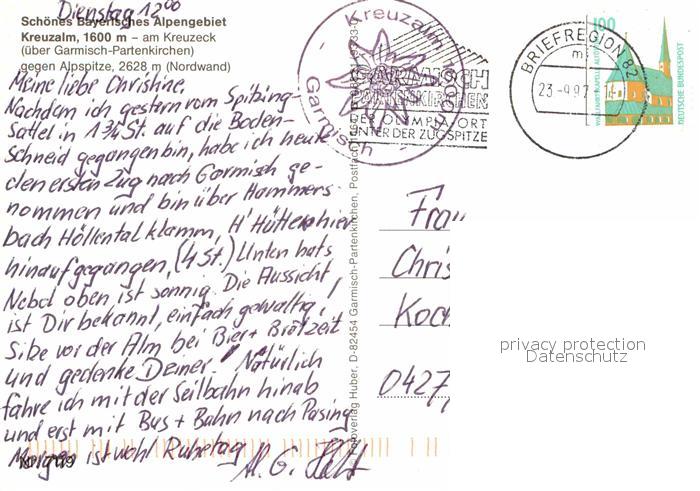 Dienstag 12⁰⁰
Schönes Bayerisches Alpengebiet
Kreuzalm, 1600 m – am Kreuzeck
(über Garmisch-Partenkirchen)
gegen Alpspitze, 2628 m (Nordwand)
Meine liebe Christine,
Nachdem ich gestern vom Spitzing-
sattel in 1¾ St. auf die Boden-
schneid gegangen bin, habe ich heute
den ersten Zug nach Garmisch ge-
nommen und bin über Hammers-
bach Höllentalklamm, H' Hütten hier
hinaufgegangen, (4 St.) Unten hats
Nebel oben ist sonnig. Die Aussicht
ist Dir bekannt, einfach gewaltig!
Sitze vor der Alm bei Bier + Brotzeit
und gedenke Deiner! Natürlich
fahre ich mit der Seilbahn hinab
und erst mit Bus + Bahn nach Pasing
Morgen ist wohl Ruhetag
Kreuzalm 1600m
Garmisch
GARMISCH
PARTENKIRCHEN
DER OLYMPIAORT
UNTER DER ZUGSPITZE
BRIEFREGION 82
m
23-9.97
100
DEUTSCHE BUNDESPOST
Fotoverlag Huber, D-82454 Garmisch-Partenkirchen, Postfach
Frau
Chris
Koch
0427
privacy protection
Datenschutz